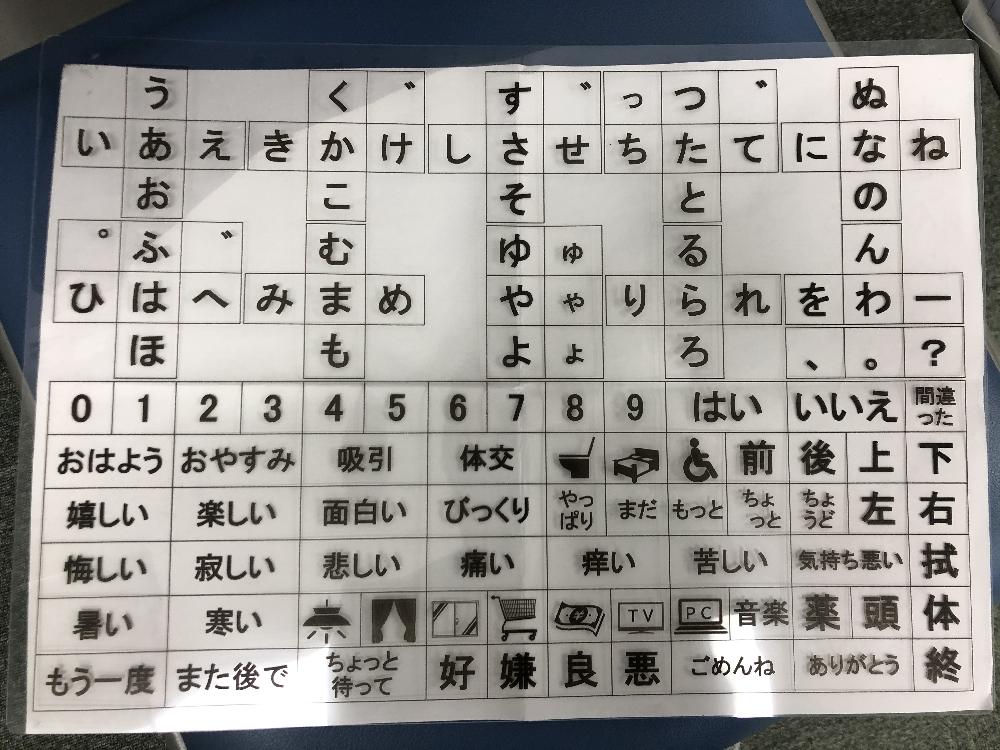 う く ゛ す ゛ っ つ ゛ ぬ
い あ え き か け し さ せ ち た て に な ね
お こ そ と の
゜ ふ ゛ む ゆ ゅ る ん
ひ は へ み ま め や ゃ り ら れ を わ ー
ほ も よ ょ ろ 、 。 ?
0 1 2 3 4 5 6 7 8 9 はい いいえ 間違った
おはよう おやすみ 吸引 体交 前 後 上 下
嬉しい 楽しい 面白い びっくり やっぱり まだ もっと ちょっと ちょうど 左 右
悔しい 寂しい 悲しい 痛い 痒い 苦しい 気持ち悪い 拭
暑い 寒い TV PC 音楽 薬 頭 体
もう一度 また後で ちょっと待って 好 嫌 良 悪 ごめんね ありがとう 終